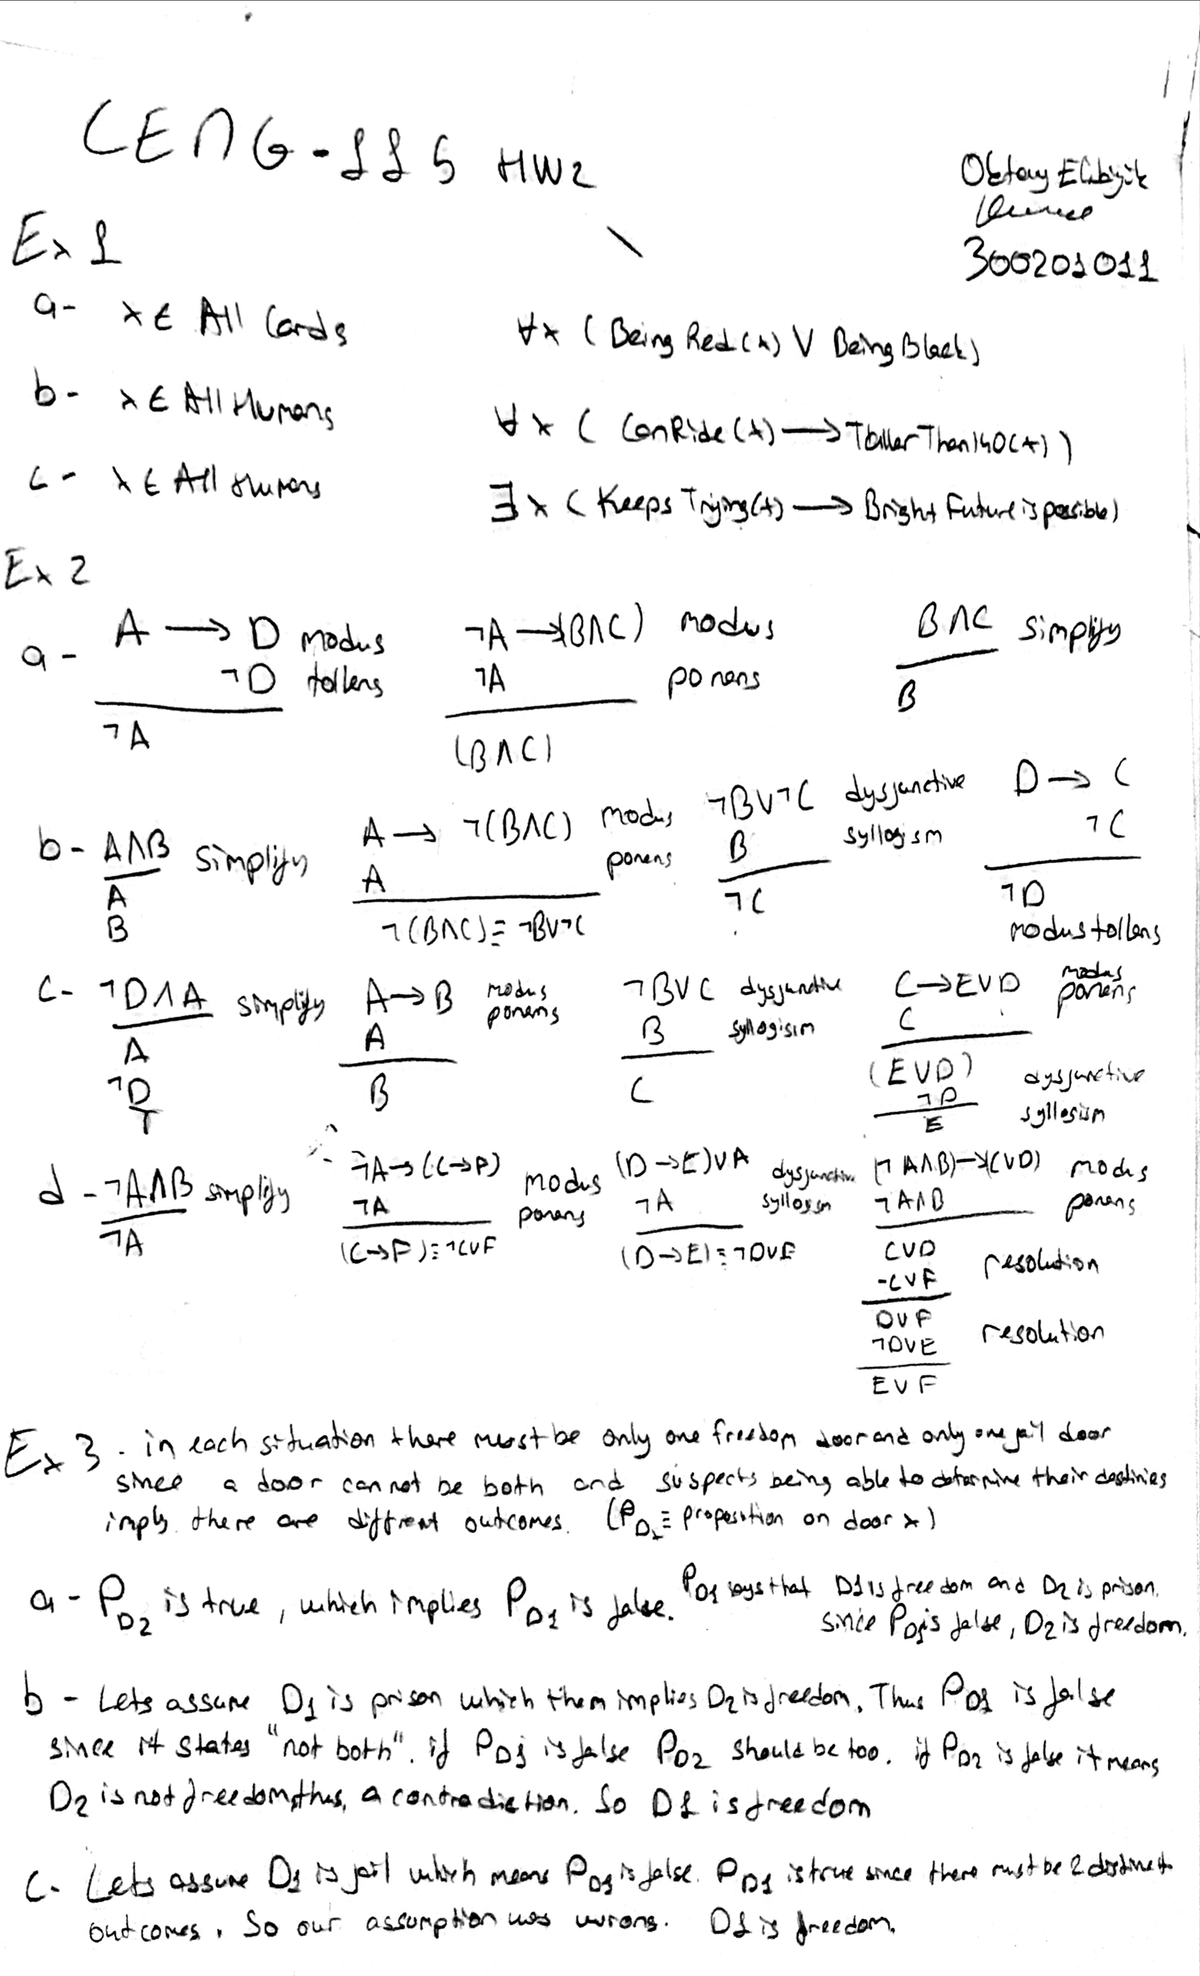 CENG-115 HW2
Oktay Elibüyük
300201011
Ex 1
a- x ∈ All Cards ∀x (Being Red(x) V Being Black)
b- x ∈ All Humans ∀x ( CanRide(x) → TallerThan140(x))
c- x ∈ All Humans ∃x (Keeps Trying(x) → Bright Future is possible)
Ex 2
a- A → D modus ¬A →(B∧C) modus B∧C simplify
¬D tollens ¬A ponens B
¬A (B∧C)
b- A∧B simplify A → ¬(B∧C) modus ¬BV¬C dysjunctive D → C
A A ponens B syllogism ¬C
B ¬(B∧C)≡ ¬BV¬C ¬C ¬D
modus tollens
c- ¬D∧A simplify A→B modus ponens ¬BVC dysjunctive C→EVD modus ponens
A A B syllogisim C
¬D B C (EVD) dysjunctive
T ¬D syllogism
E
d-¬A∧B simplify ¬A→(C→F) modus (D→E)VA dysjunctive (¬A∧B)→(CVD) modus
¬A ¬A ponens ¬A syllogism ¬A∧B ponens
(C→F)≡¬CVF (D→E)≡¬DVE CVD
¬CVF resolution
DVF
¬DVE resolution
EVF
Ex 3. in each situation there must be only one freedom door and only one jail door
since a door cannot be both and suspects being able to determine their destinies
imply there are different outcomes. (PDx ≡ proposition on door x)
a- PD2 is true, which implies PD1 is false. PD1 says that D1 is freedom and D2 is prison.
since PD1 is false, D2 is freedom.
b - Lets assume D1 is prison which them implies D2 is freedom. Thus PD1 is false
since it states "not both". if PD1 is false PD2 should be too. if PD2 is false it means
D2 is not freedom, thus, a contradiction. So D1 is freedom
c- Lets assume D1 is jail which means PD1 is false. PD1 is true since there must be 2 distinct
outcomes. So our assumption was wrong. D1 is freedom.